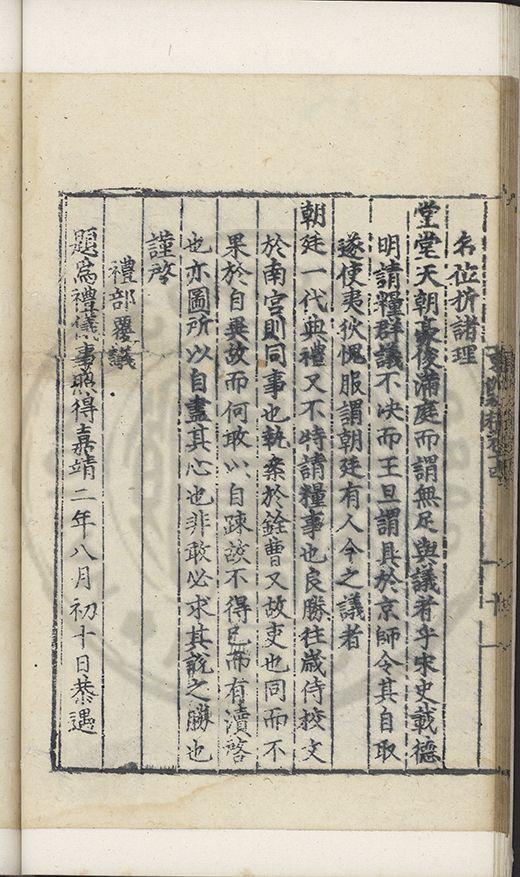 名位折諸理
堂堂天朝豪俊滿庭而謂無足與議者乎宋史載德
明請糧群議不決而王旦謂具於京師令其自取
遂使夷狄愧服謂朝廷有人今之議者
朝廷一代典禮又不特請糧事也良勝往歲侍校文
於南宮則同事也執案於銓曹又故吏也同而不
果於自異故而何敢以自疎故不得已而有瀆啓
也亦圖所以自盡其心也非敢必求其說之勝也
謹啓
禮部覆議
題為禮儀事照得嘉靖二年八月初十日恭遇